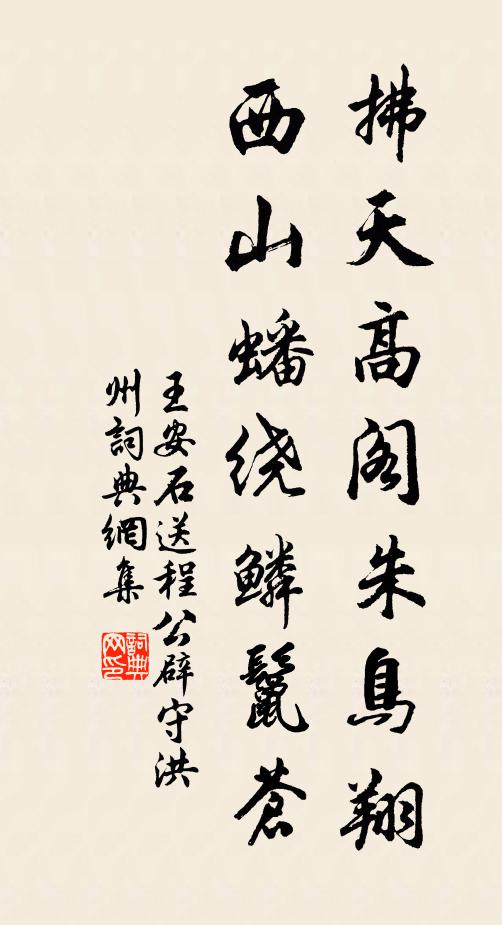 拂天高阁朱鳥翔
西山蟠绕鳞鬣蒼
王安石送程公辟守洪
州詞典網集
詞典網印